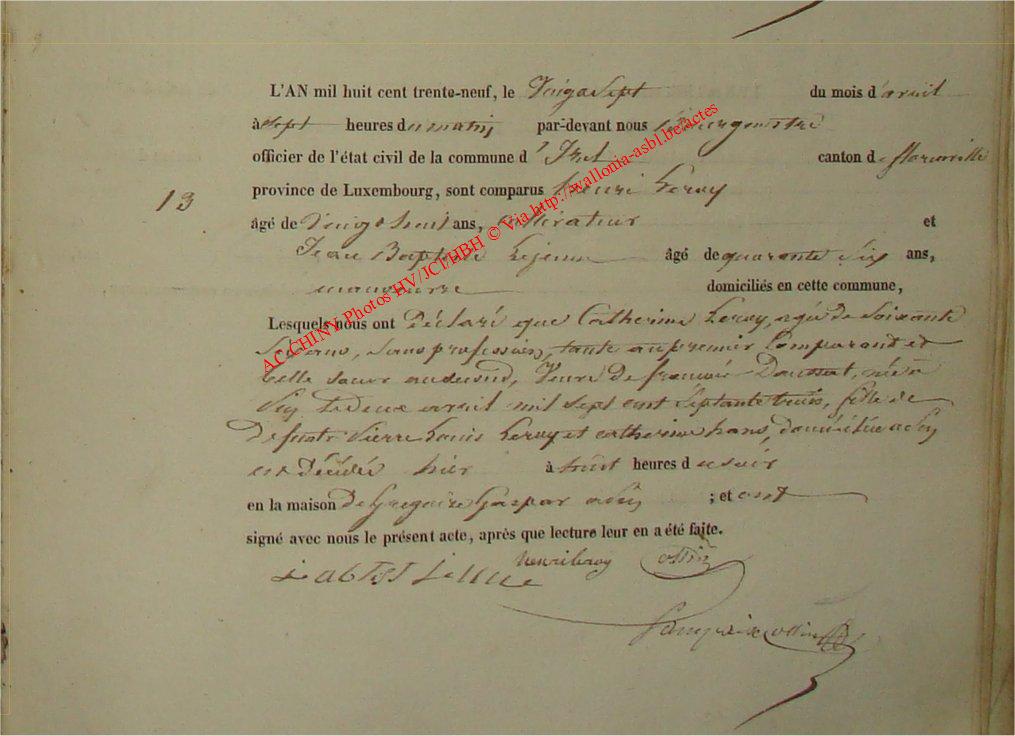 L'AN mil huit cent trente-neuf, le Vingt Sept du mois d'avril
à Sept heures du matin par-devant nous Bourgmestre
officier de l'état civil de la commune d'Izel canton de florenville
13
province de Luxembourg, sont comparus henri Leroy
âgé de Vingt huit ans, Cultivateur et
Jean Baptiste Lejeune âgé de quarante Six ans,
manoeuvre domiciliés en cette commune,
Lesquels nous ont Déclaré que Catherine Leroy, agée de Soixante
Six ans, Sans profession, tante au premier Comparant et
belle Soeur au Second, Veuve de françois, née à
le deux avril mil Sept cent Septante trois, fille de
Defunts Pierre Louis Leroy et catherine hans, domiciliée a
est Décédée hier à huit heures du soir
en la maison De Gregoire Gaspar a ; et ont
signé avec nous le présent acte, après que lecture leur en a été faite.
henri leroy
AC CHINY Photos HV/JCI/HBH © Via http://wallonia-asbl.be/actes